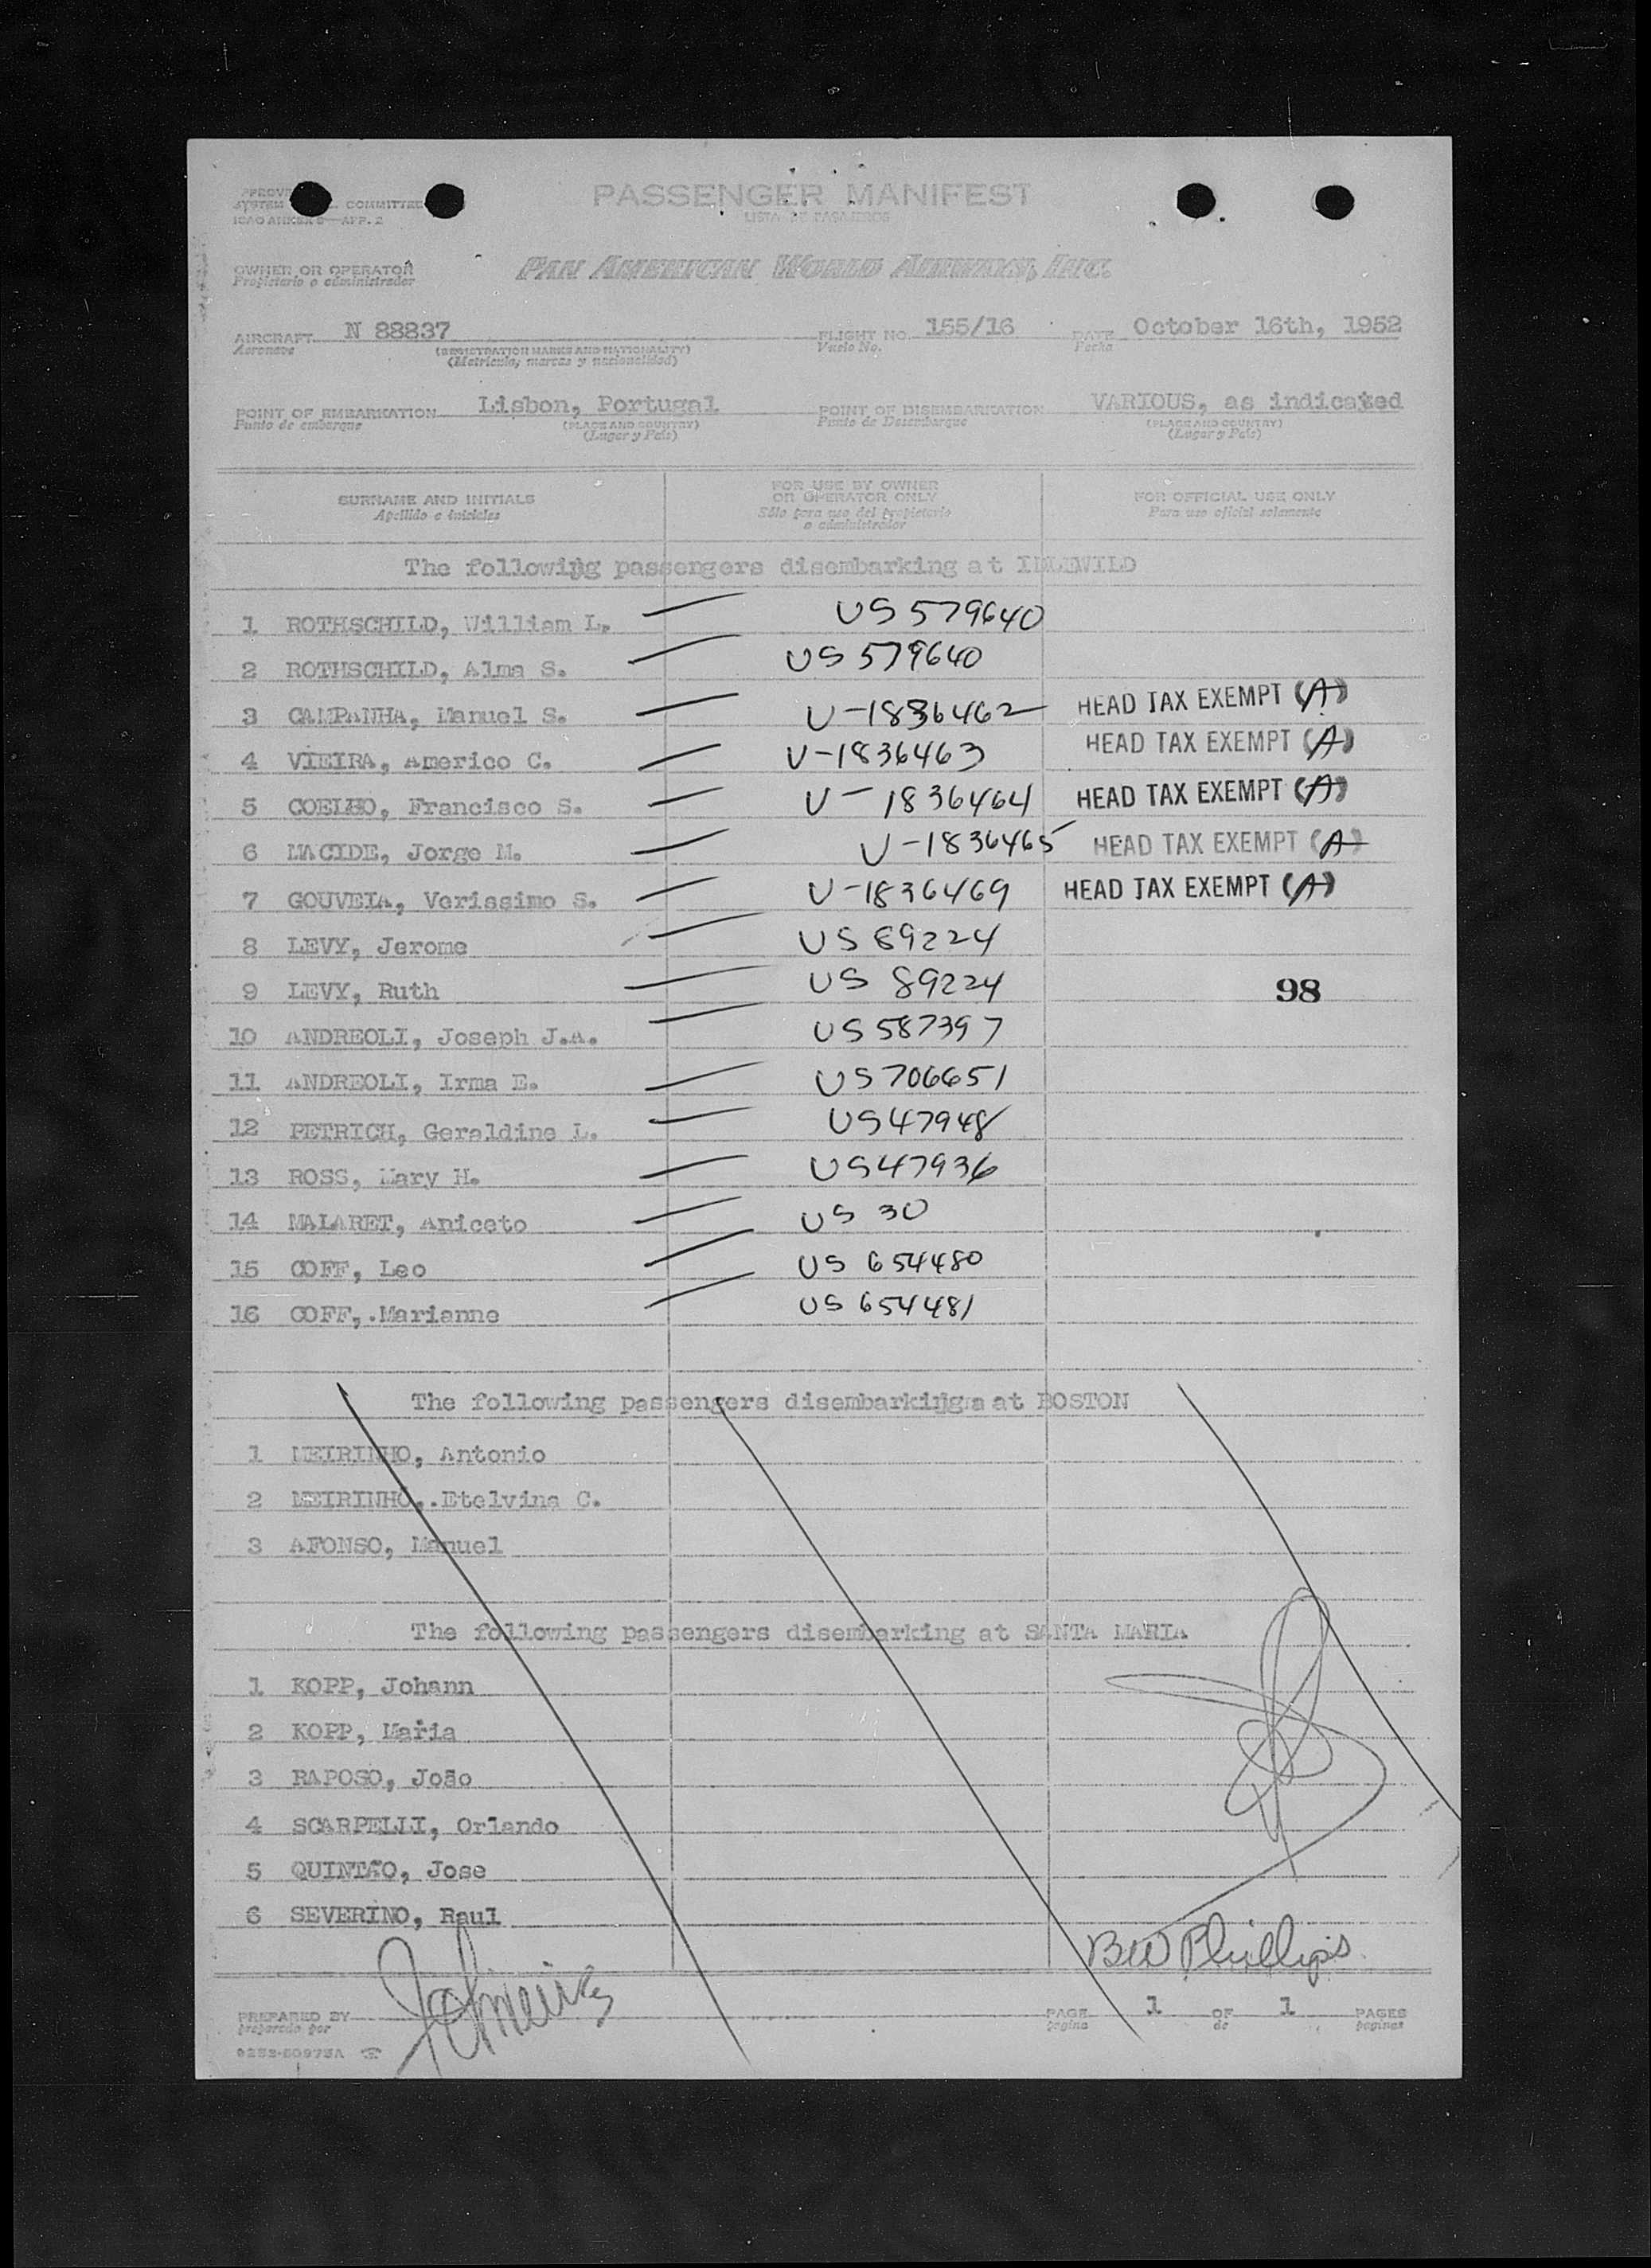 PASSENGER MANIFEST
LISTA DE PASAJEROS
COMMITTEE
OWNER OR OPERATOR
Propietario o administrador
PAN AMERICAN WORLD AIRWAYS, INC.
AIRCRAFT N 88837 FLIGHT NO. 155/16 DATE October 16th, 1952
Aeronave (REGISTRATION MARKS AND NATIONALITY) Vuelo No. Fecha
(Matricula, marcas y nacionalidad)
POINT OF EMBARKATION Lisbon, Portugal POINT OF DISEMBARKATION VARIOUS, as indicated
Punto de embarque (PLACE AND COUNTRY) Punto de Desembarque (PLACE AND COUNTRY)
(Lugar y País) (Lugar y País)
SURNAME AND INITIALS
Apellido e iniciales
FOR USE BY OWNER
OR OPERATOR ONLY
Sólo para uso del propietario
o administrador
FOR OFFICIAL USE ONLY
Para uso oficial solamente
The following passengers disembarking at IDLEWILD
1 ROTHSCHILD, William L. US 579640
2 ROTHSCHILD, Alma S. US 579640
3 CAMPANHA, Manuel S. U-1836462 HEAD TAX EXEMPT (A)
4 VIEIRA, Americo C. U-1836463 HEAD TAX EXEMPT (A)
5 COELHO, Francisco S. U-1836464 HEAD TAX EXEMPT (A)
6 MACIDE, Jorge M. U-1836465 HEAD TAX EXEMPT (A)
7 GOUVEIA, Verissimo S. U-1836469 HEAD TAX EXEMPT (A)
8 LEVY, Jerome US 89224
9 LEVY, Ruth US 89224 98
10 ANDREOLI, Joseph J.A. US 587397
11 ANDREOLI, Irma E. US 706651
12 PETRICH, Geraldine L. US 47948
13 ROSS, Mary H. US 47936
14 MALARET, Aniceto US 30
15 COFF, Leo US 654480
16 COFF, .Marianne US 654481
The following passengers disembarking at BOSTON
1 MEIRINHO, Antonio
2 MEIRINHO,.Etelvina C.
3 AFONSO, Manuel
The following passengers disembarking at SANTA MARIA
1 KOPP, Johann
2 KOPP, Maria
3 RAPOSO, João
4 SCARPELLI, Orlando
5 QUINTÃO, Jose
6 SEVERINO, Raul
BW Phillips
PREPARED BY PAGE 1 OF 1 PAGES
preparado por pagina de paginas